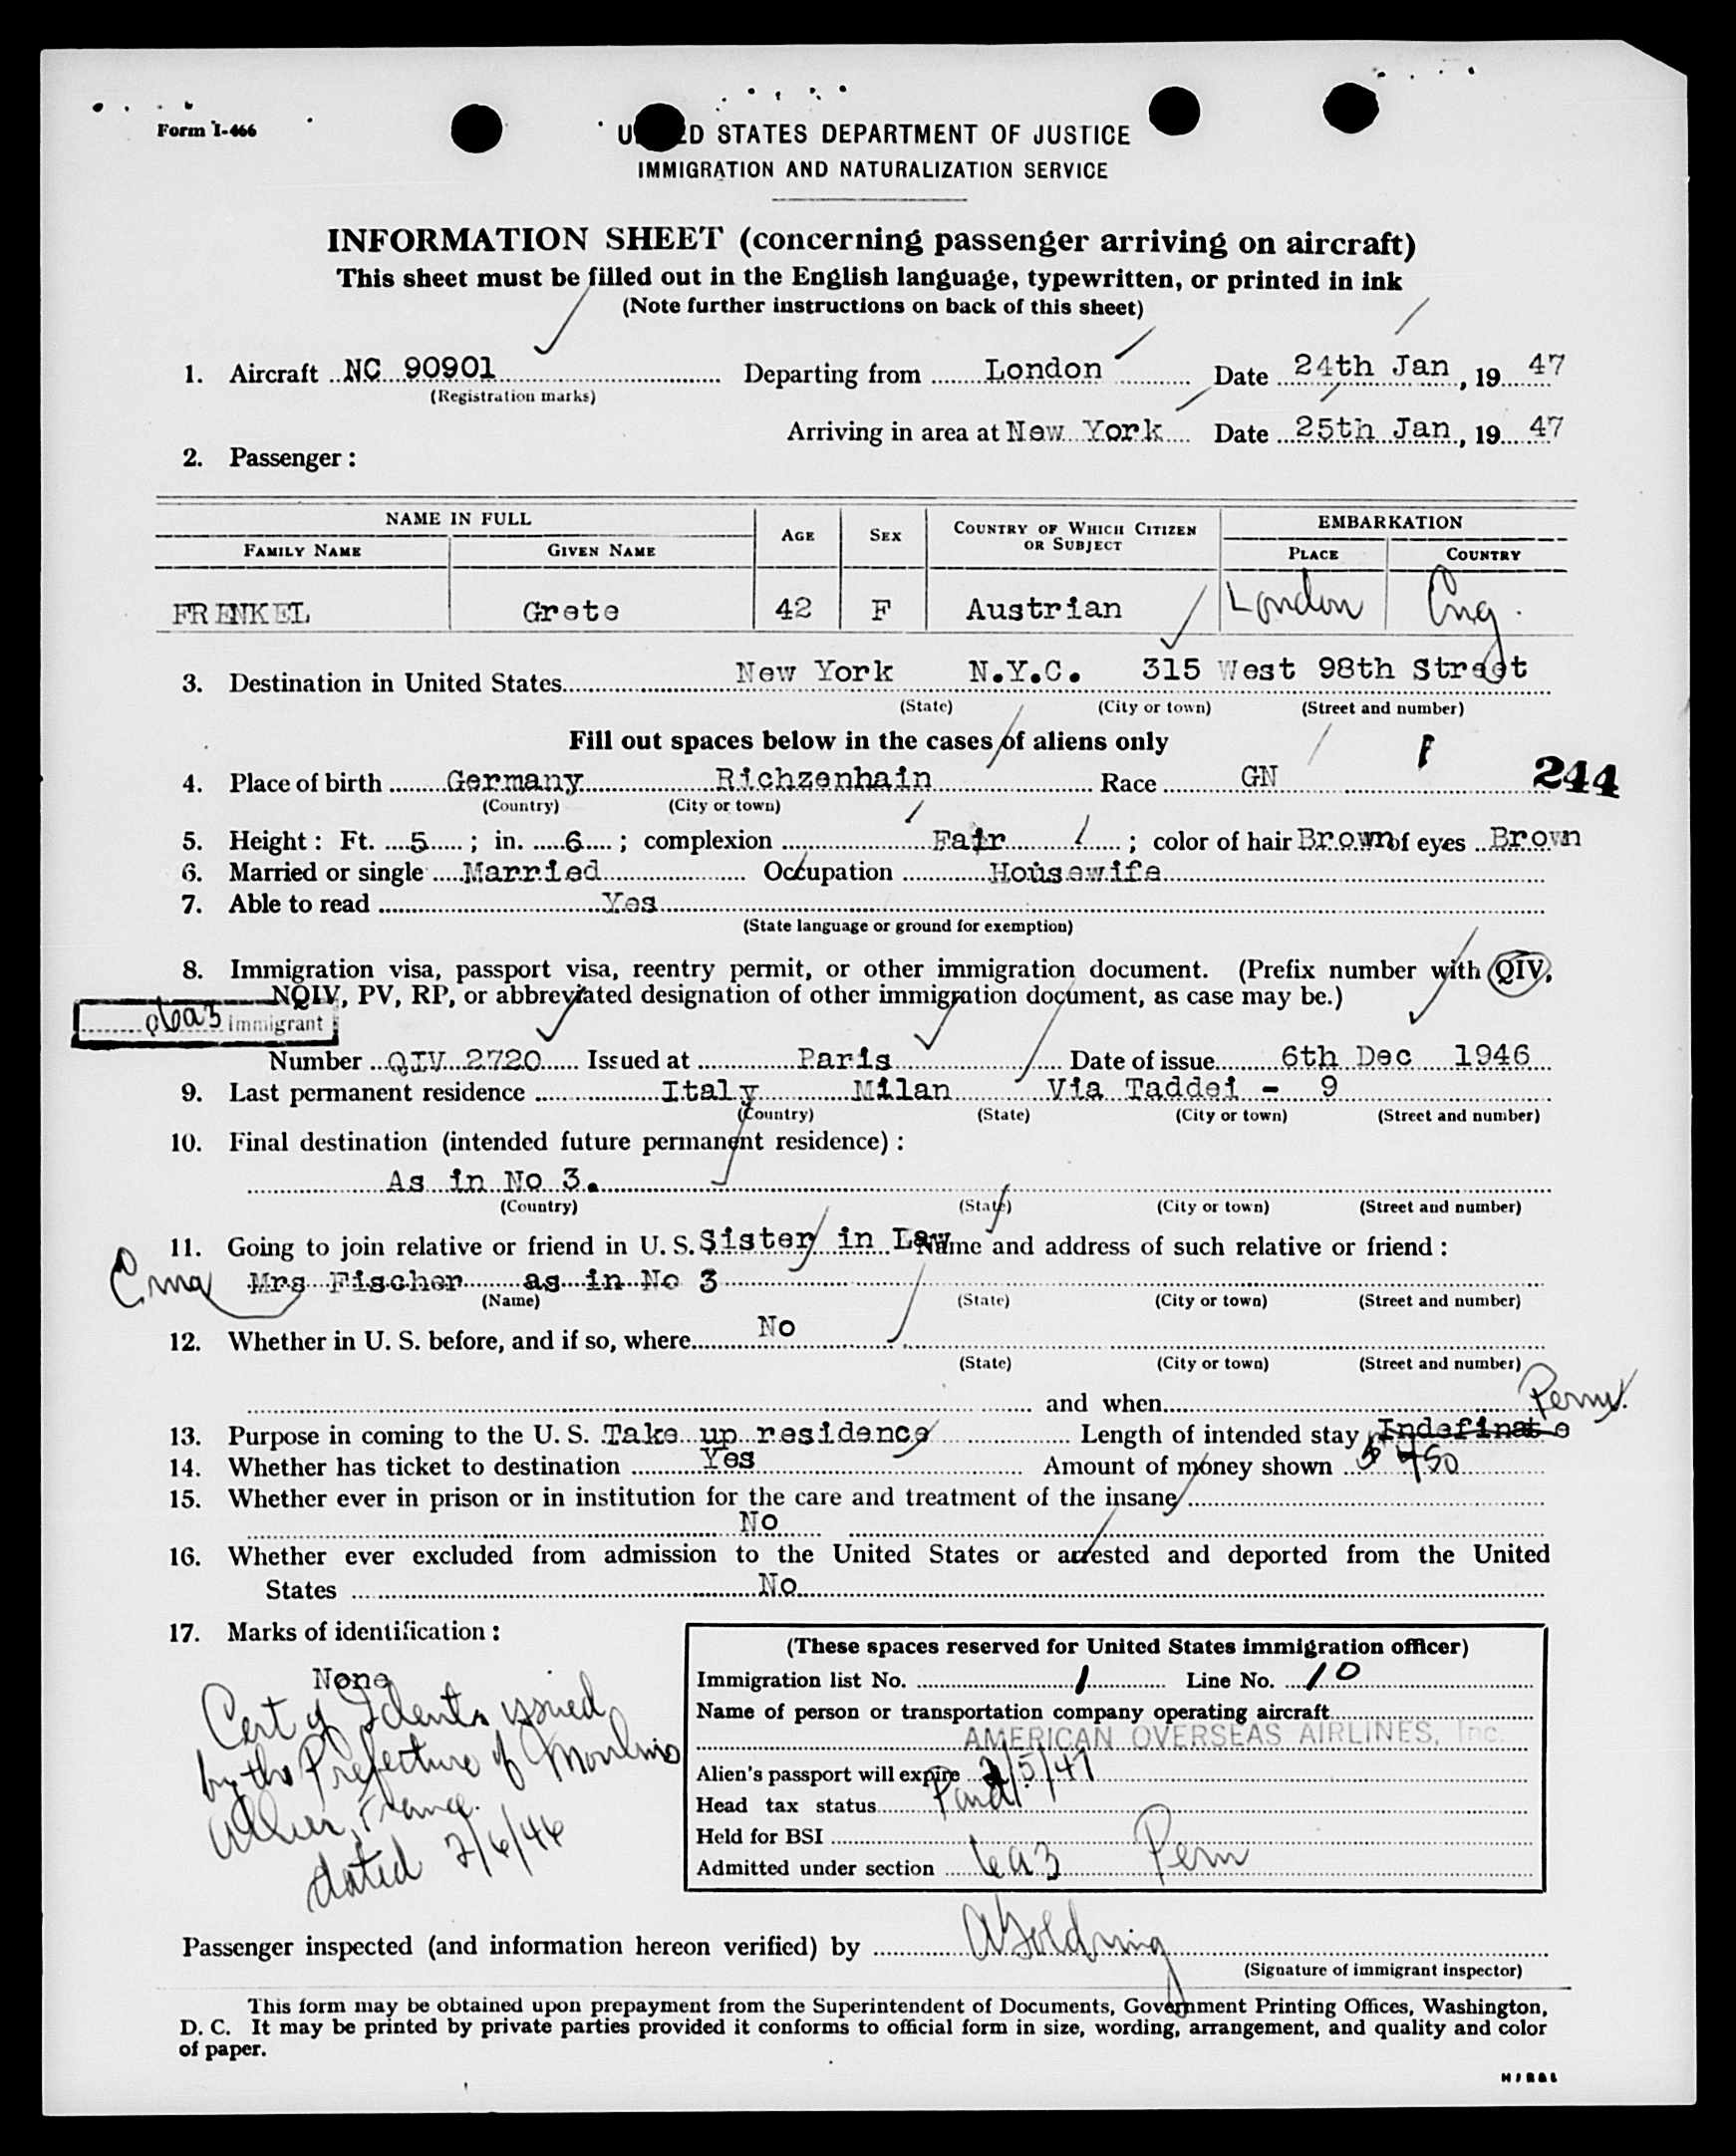 Form I-466
UNITED STATES DEPARTMENT OF JUSTICE
IMMIGRATION AND NATURALIZATION SERVICE
INFORMATION SHEET (concerning passenger arriving on aircraft)
This sheet must be filled out in the English language, typewritten, or printed in ink
(Note further instructions on back of this sheet)
1. Aircraft NC 90901 Departing from London Date 24th Jan, 19 47
(Registration marks)
Arriving in area at New York Date 25th Jan, 19 47
2. Passenger:
NAME IN FULL AGE SEX COUNTRY OF WHICH CITIZEN OR SUBJECT EMBARKATION
FAMILY NAME GIVEN NAME PLACE COUNTRY
FRENKEL Grete 42 F Austrian London Eng.
3. Destination in United States New York N.Y.C. 315 West 98th Street
(State) (City or town) (Street and number)
Fill out spaces below in the cases of aliens only
4. Place of birth Germany Richzenhain Race GN 244
(Country) (City or town)
5. Height: Ft. 5; in. 6; complexion Fair; color of hair Brown of eyes Brown
6. Married or single Married Occupation Housewife
7. Able to read Yes
(State language or ground for exemption)
8. Immigration visa, passport visa, reentry permit, or other immigration document. (Prefix number with QIV,
NQIV, PV, RP, or abbreviated designation of other immigration document, as case may be.)
Q6a3 immigrant
Number QIV 2720 Issued at Paris Date of issue 6th Dec 1946
9. Last permanent residence Italy Milan Via Taddei - 9
(Country) (State) (City or town) (Street and number)
10. Final destination (intended future permanent residence):
As in No 3.
(Country) (State) (City or town) (Street and number)
11. Going to join relative or friend in U. S. Sister in Law Name and address of such relative or friend:
Erna Mrs Fischer as in No 3
(Name) (State) (City or town) (Street and number)
12. Whether in U. S. before, and if so, where No
(State) (City or town) (Street and number)
and when Perm.
13. Purpose in coming to the U. S. Take up residence Length of intended stay Indefinate
14. Whether has ticket to destination Yes Amount of money shown $ 450
15. Whether ever in prison or in institution for the care and treatment of the insane
No
16. Whether ever excluded from admission to the United States or arrested and deported from the United
States No
17. Marks of identification:
None
Cert of Identn issued
by the Prefecture of Moulins
Allier, France.
dated 2/6/46
(These spaces reserved for United States immigration officer)
Immigration list No. 1 Line No. 10
Name of person or transportation company operating aircraft
AMERICAN OVERSEAS AIRLINES, Inc.
Alien's passport will expire 2/5/47
Head tax status Paid
Held for BSI
Admitted under section 6a3 Perm
Passenger inspected (and information hereon verified) by A Goldring
(Signature of immigrant inspector)
This form may be obtained upon prepayment from the Superintendent of Documents, Government Printing Offices, Washington,
D. C. It may be printed by private parties provided it conforms to official form in size, wording, arrangement, and quality and color
of paper.